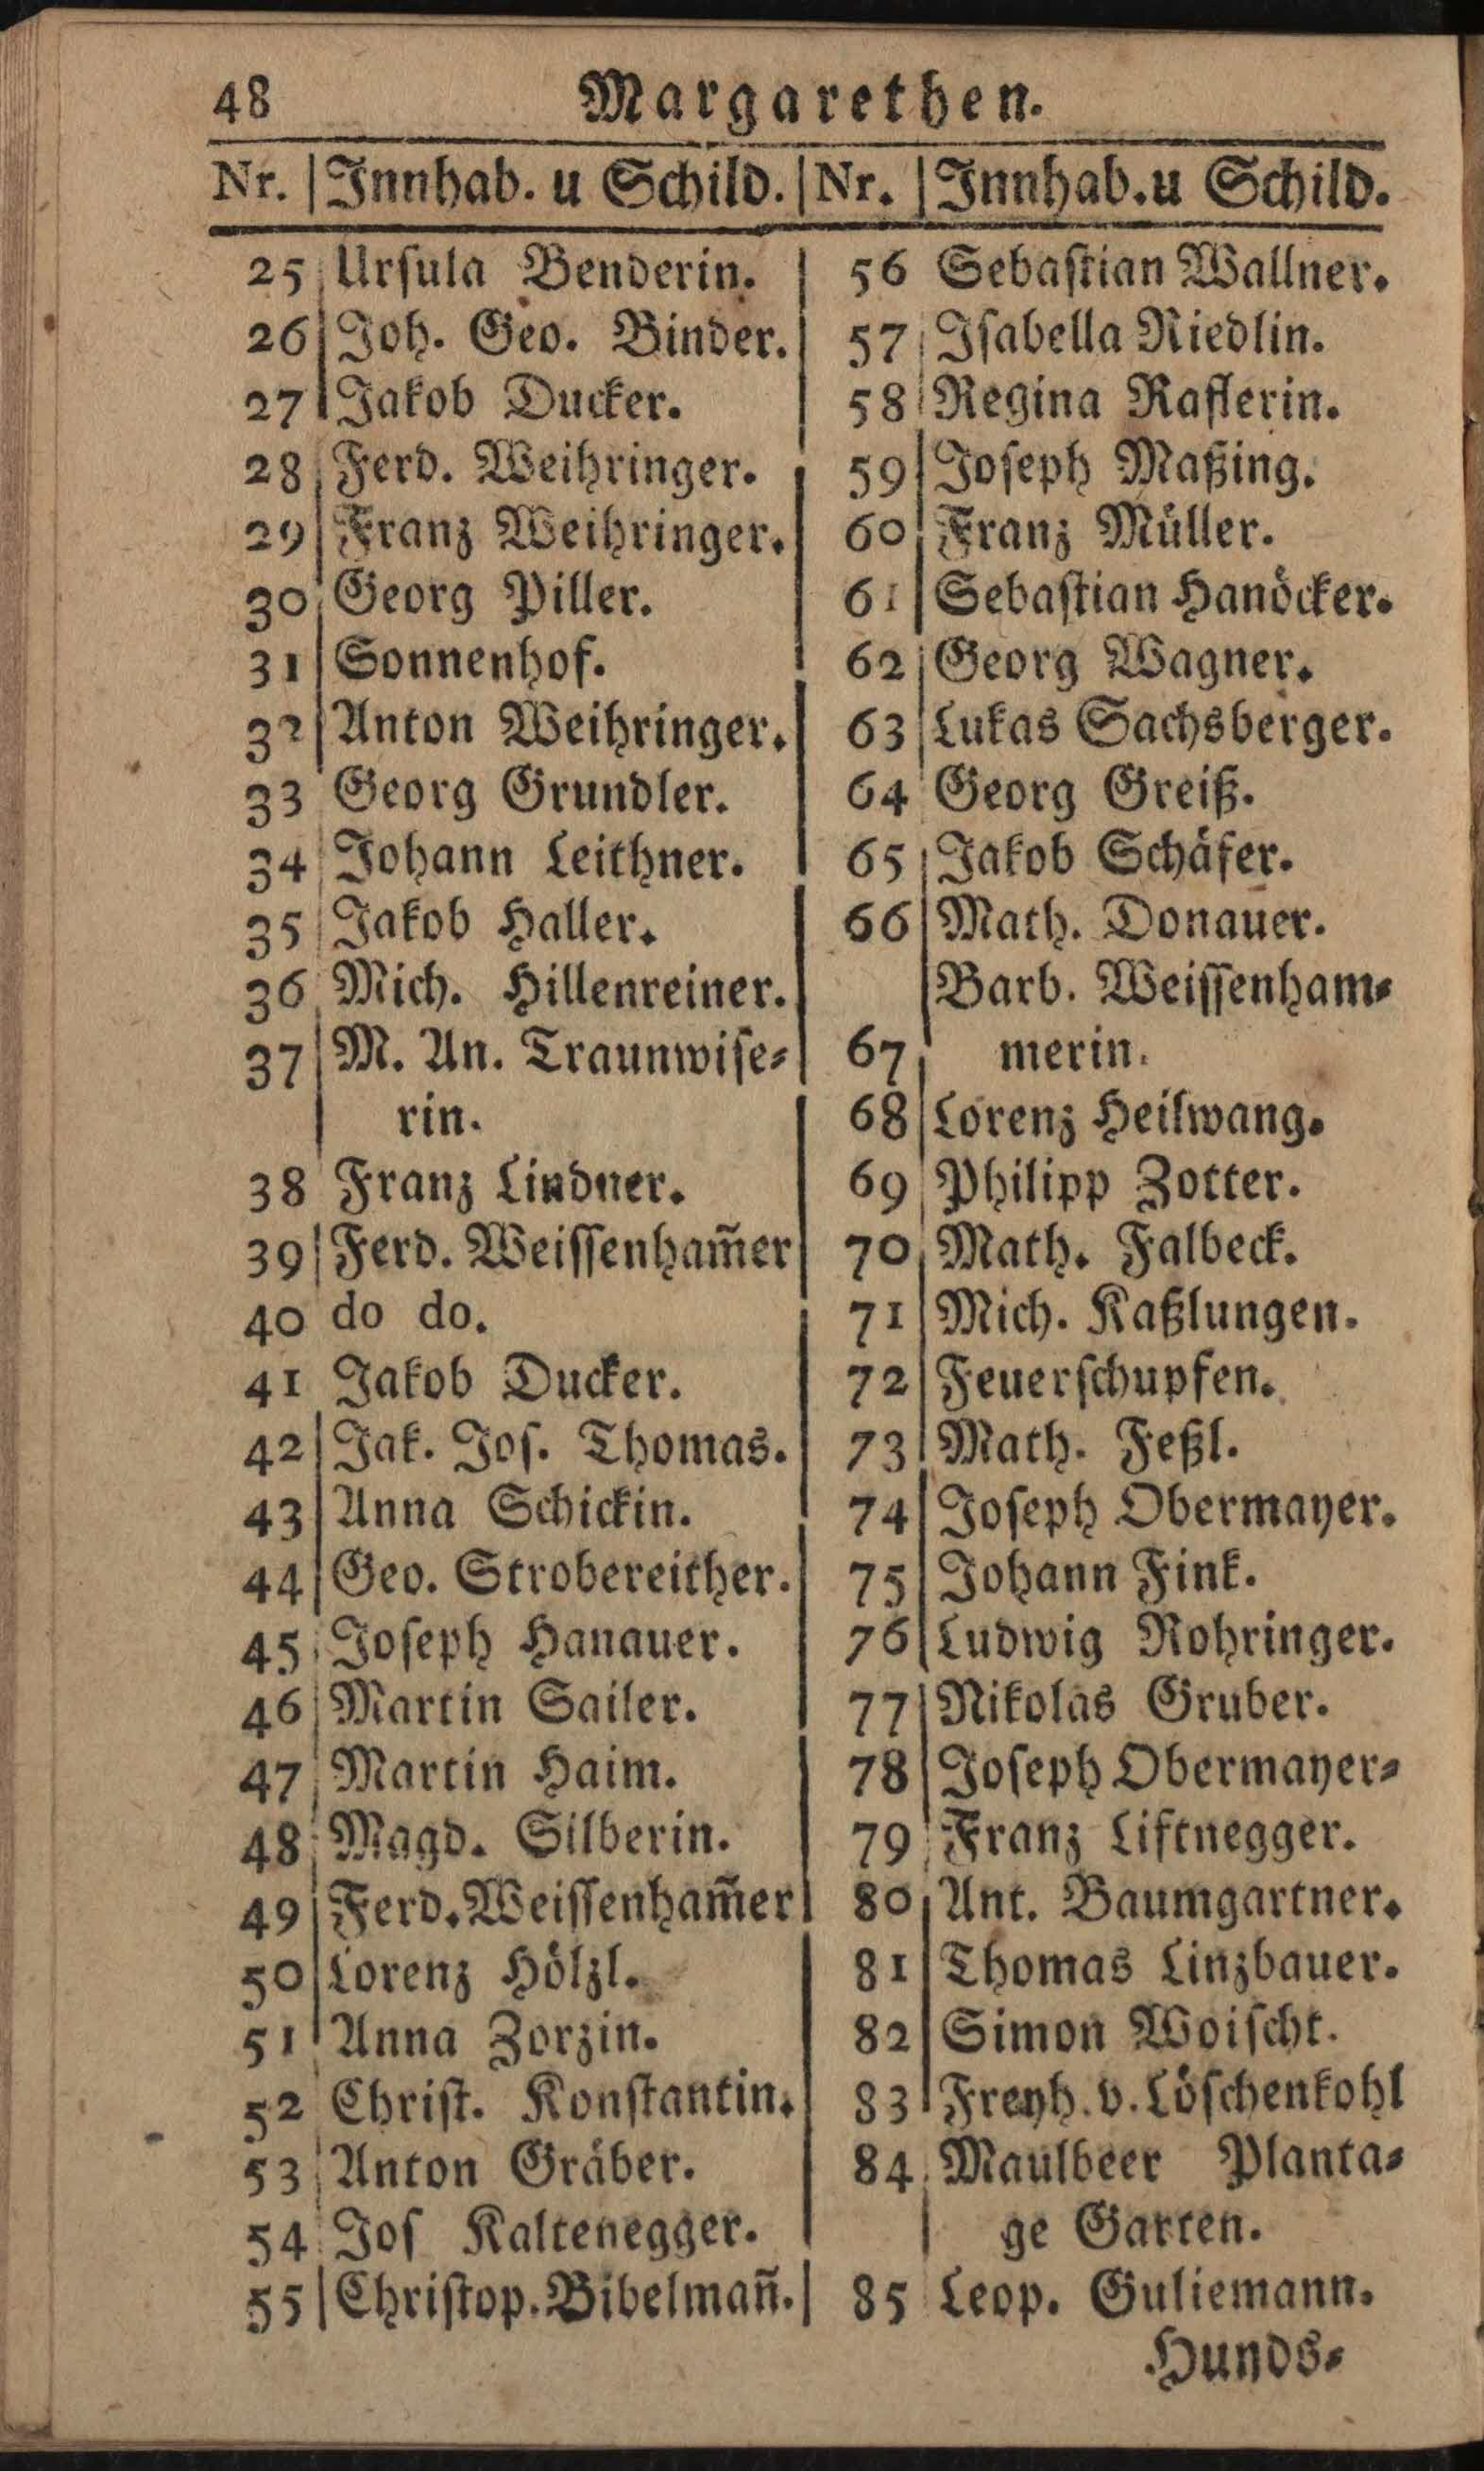 48 Margarethen.
Nr. | Innhab. u Schild. | Nr. | Innhab. u Schild.
25 Ursula Benderin.
26 Joh. Geo. Binder.
27 Jakob Ducker.
28 Ferd. Weihringer.
29 Franz Weihringer.
30 Georg Piller.
31 Sonnenhof.
32 Anton Weihringer.
33 Georg Grundler.
34 Johann Leithner.
35 Jakob Haller.
36 Mich. Hillenreiner.
37 M. An. Traunwiſe⸗
rin.
38 Franz Lindner.
39 Ferd. Weiſſenham̃er
40 do do.
41 Jakob Ducker.
42 Jak. Joſ. Thomas.
43 Anna Schickin.
44 Geo. Strobereither.
45 Joſeph Hanauer.
46 Martin Sailer.
47 Martin Haim.
48 Magd. Silberin.
49 Ferd. Weiſſenham̃er
50 Lorenz Hölzl.
51 Anna Zorzin.
52 Chriſt. Konſtantin.
53 Anton Gräber.
54 Joſ Kaltenegger.
55 Chriſtop. Bibelmañ.
56 Sebaſtian Wallner.
57 Iſabella Riedlin.
58 Regina Raflerin.
59 Joſeph Maßing.
60 Franz Müller.
61 Sebaſtian Hanöcker.
62 Georg Wagner.
63 Lukas Sachsberger.
64 Georg Greiß.
65 Jakob Schäfer.
66 Math. Donauer.
Barb. Weiſſenham⸗
67 merin.
68 Lorenz Heilwang.
69 Philipp Zotter.
70 Math. Falbeck.
71 Mich. Kaßlungen.
72 Feuerſchupfen.
73 Math. Feßl.
74 Joſeph Obermayer.
75 Johann Fink.
76 Ludwig Rohringer.
77 Nikolas Gruber.
78 Joſeph Obermayer⸗
79 Franz Liftnegger.
80 Ant. Baumgartner.
81 Thomas Linzbauer.
82 Simon Woiſcht.
83 Freyh. v. Löſchenkohl
84 Maulbeer Planta⸗
ge Garten.
85 Leop. Guliemann.
Hunds⸗